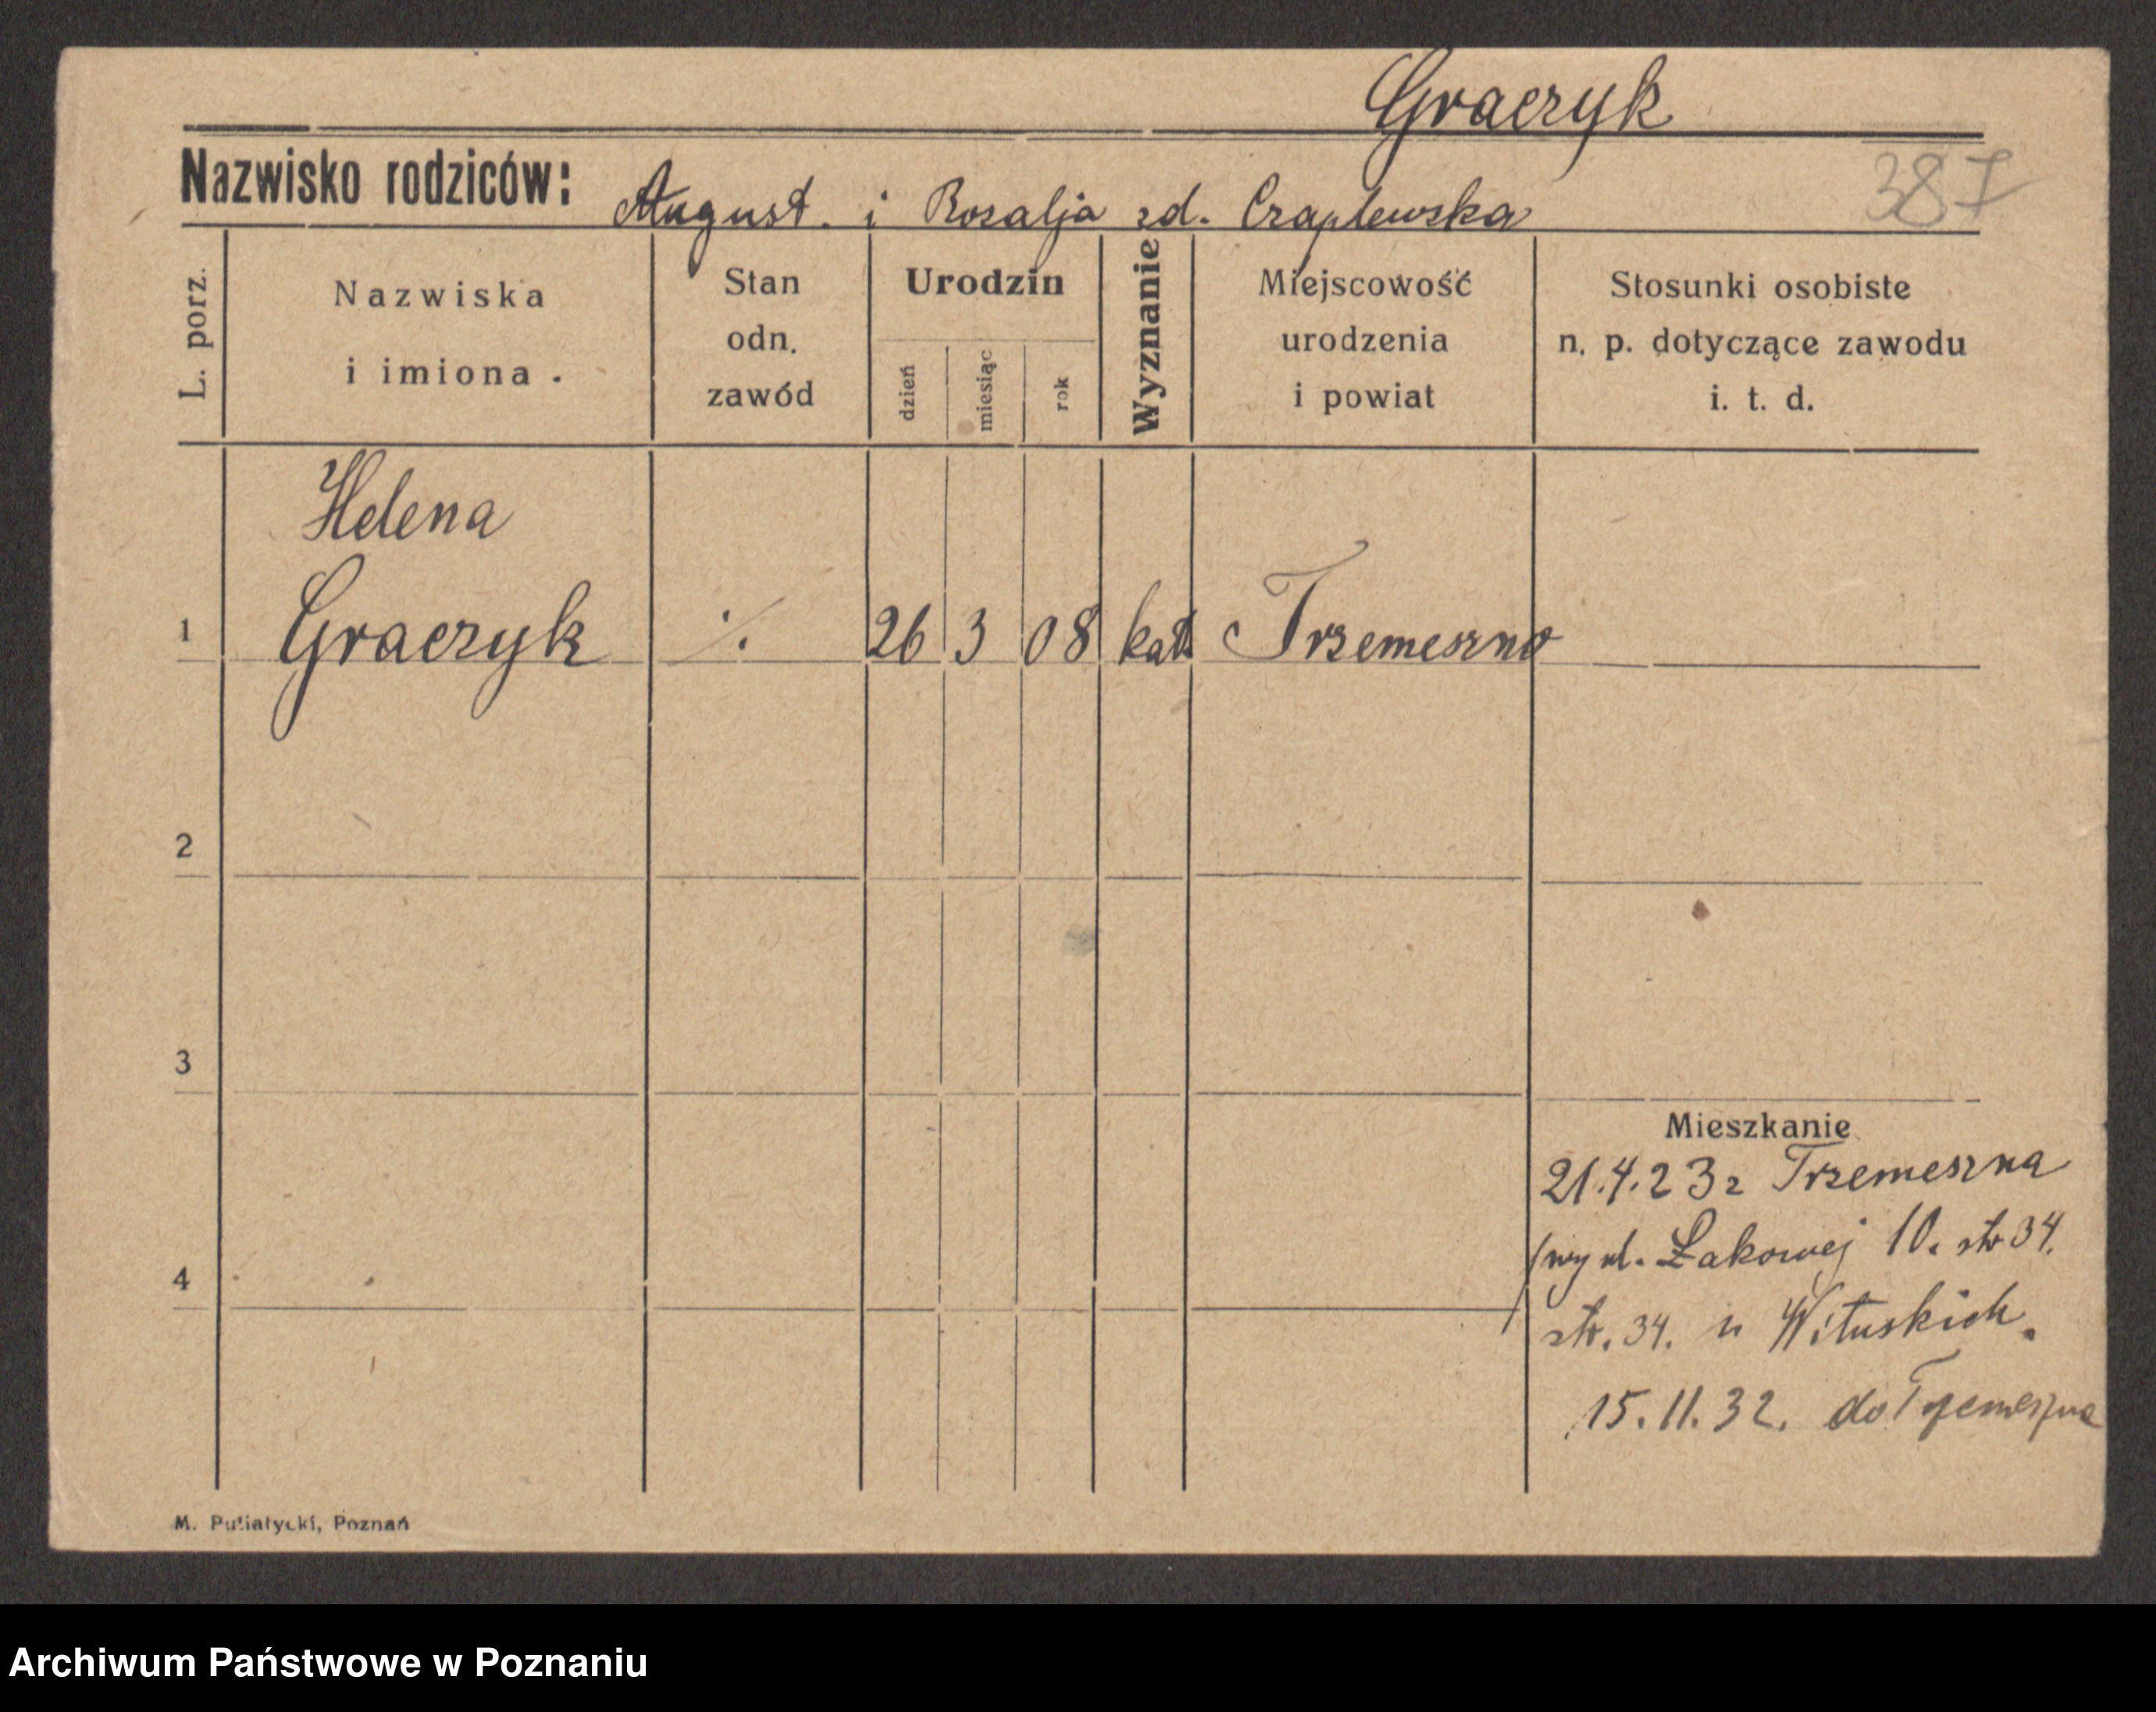 Graczyk
Nazwisko rodziców: August. i Rozalja zd. Czaplewska
387
L. porz.
Nazwiska
i imiona.
Stan
odn.
zawód
Urodzin
dzień
miesiąc
rok
Wyznanie
Miejscowość
urodzenia
i powiat
Stosunki osobiste
n. p. dotyczące zawodu
i. t. d.
Helena
1 Graczyk ./. 26 3 08 kat. Trzemeszno
2
3
Mieszkanie
21.4.23 z Trzemeszna
ul. Łakowej 10. str 34.
4
str. 34. u Wituskich.
15.11.32. do Trzemeszna
M. Putiatycki, Poznań
Archiwum Państwowe w Poznaniu